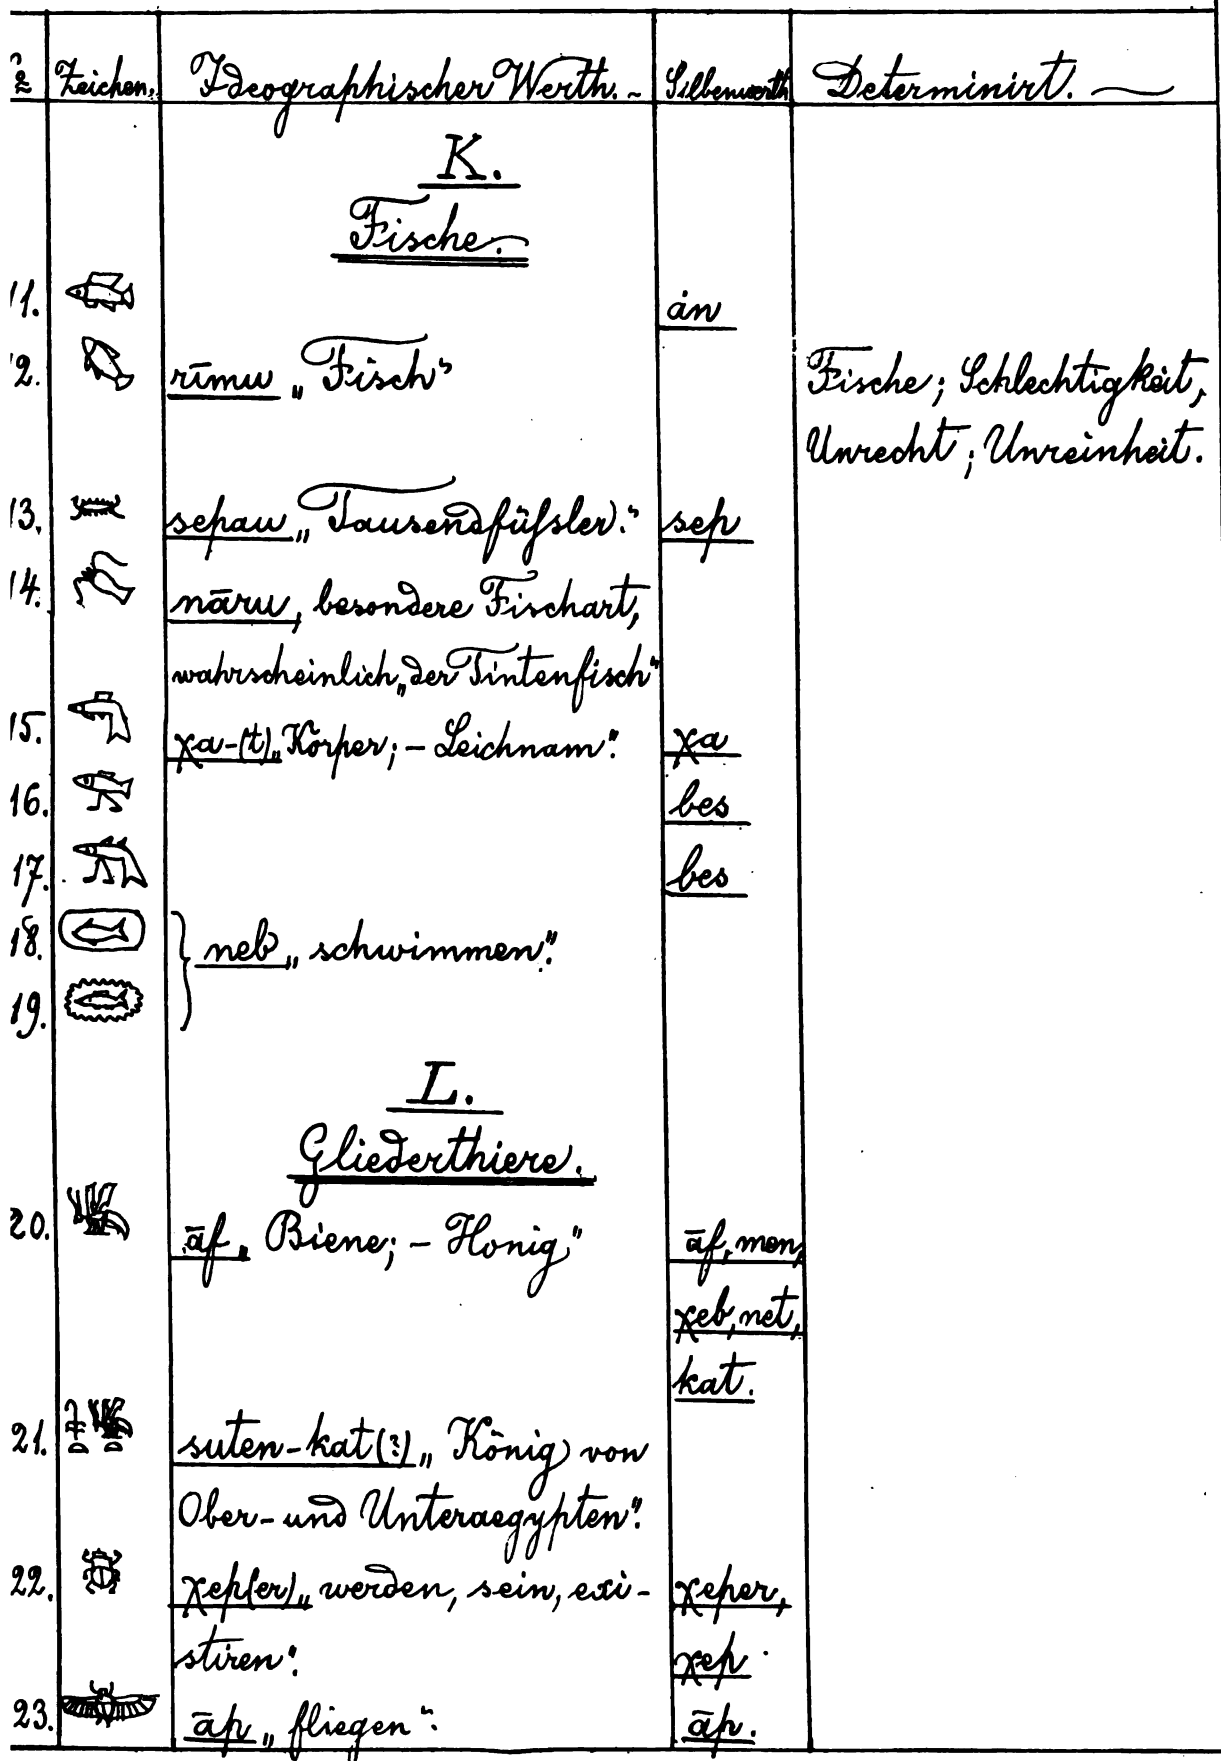 Zeichen. Ideographischer Werth. Silbenwerth Determinirt.
K.
Fische.
11. án
12. rīmu „Fisch“ Fische; Schlechtigkeit,
Unrecht; Unreinheit.
13. sepau „Tausendfüfsler.“ sep
14. nāru, besondere Fischart,
wahrscheinlich „der Tintenfisch“
15. χa-(t) „Körper; – Leichnam“. χa
16. bes
17. bes
18. neb „schwimmen“.
19.
L.
Gliederthiere.
20. āf „Biene; – Honig,“ āf, men,
χeb, net,
kat.
21. suten-kat(?) „König von
Ober- und Unteraegypten“.
22. χep(er) „werden, sein, exi- χeper,
stiren“. χep
23. āp „fliegen“. āp.